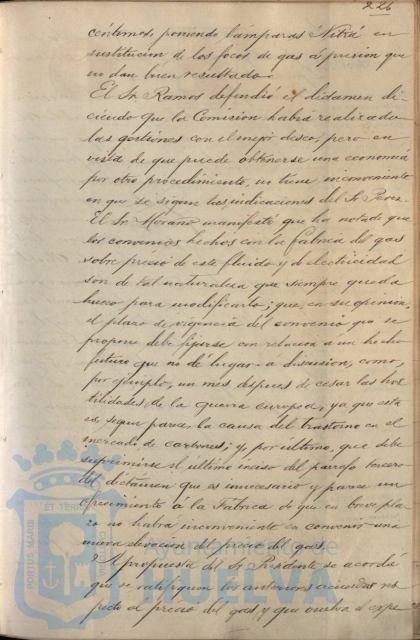 226
céntimos, poniendo lámparas "Nitra" en
sustitucion de los focos de gas á presion que
no dan buen resultado.
El Sr. Ramos defendió el dictamen di-
ciendo que la Comision habia realizado
las gestiones con el mejor deseo, pero en
vista de que puede obtenerse una economia
por otro procedimiento, no tiene inconveniente
en que se sigan las indicaciones del Sr. Perez.
El Sr. Morano manifestó que ha notado que
los convenios hechos con la fabrica del gas
sobre precio de este fluido y de electricidad
son de tal naturaleza que siempre queda
hueco para modificarlo; que, en su opinion,
el plazo de vigencia del convenio que se
propone debe fijarse con relacion a un hecho
futuro que no dé lugar á discusion, como,
por ejemplo, un mes despues de cesar las hos-
tilidades de la guerra europea, ya que esta
es, segun parece, la causa del trastorno en el
mercado de carbones; y, por último, que debe
suprimirse el último inciso del parrafo tercero
del dictamen que es innecesario y parece un
ofrecimiento á la Fabrica de que en breve pla-
zo no habrá inconveniente en convenir una
nueva elevacion del precio del gas.
A propuesta del Sr. Presidente se acordó
que se ratifiquen los anteriores acuerdos res-
pecto al precio del gas y que vuelva el expe
PORTUS MARIS ET TERRAE
Ayuntamiento de
HUELVA